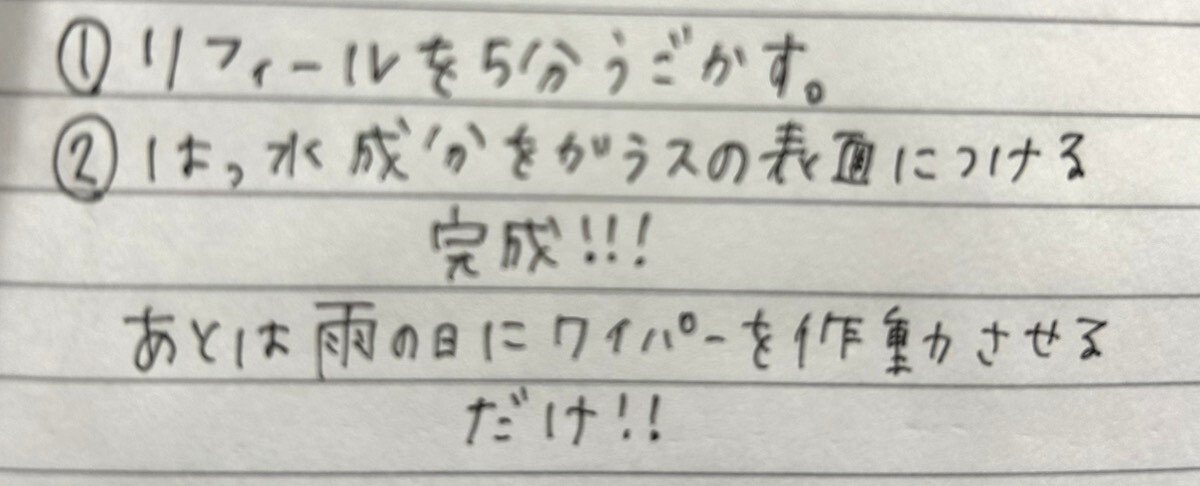 ①リフィールを5分うごかす。
②はっ水成分をガラスの表面につける
完成!!!
あとは雨の日にワイパーを作動させる
だけ!!